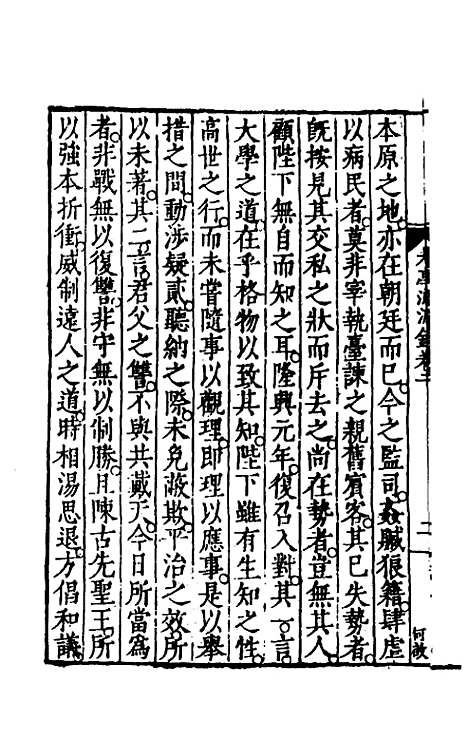 本原之地亦在朝廷而已今之監司姦贓狼籍肆虐
以病民者莫非宰執臺諫之親舊賓客其已失勢者
旣按見其交私之狀而斥去之尚在勢者豈無其人
顧陛下無自而知之耳隆興元年復召入對其一言
大學之道在乎格物以致其知陛下雖有生知之性
高世之行而未嘗隨事以觀理即理以應事是以舉
措之間動涉疑貳聽納之際未免蔽欺平治之效所
以未著其二言君父之讐不與共戴天今日所當爲
者非戰無以復讐非守無以制勝且陳古先聖王所
以強本折衝威制遠人之道時相湯思退方倡和議
二